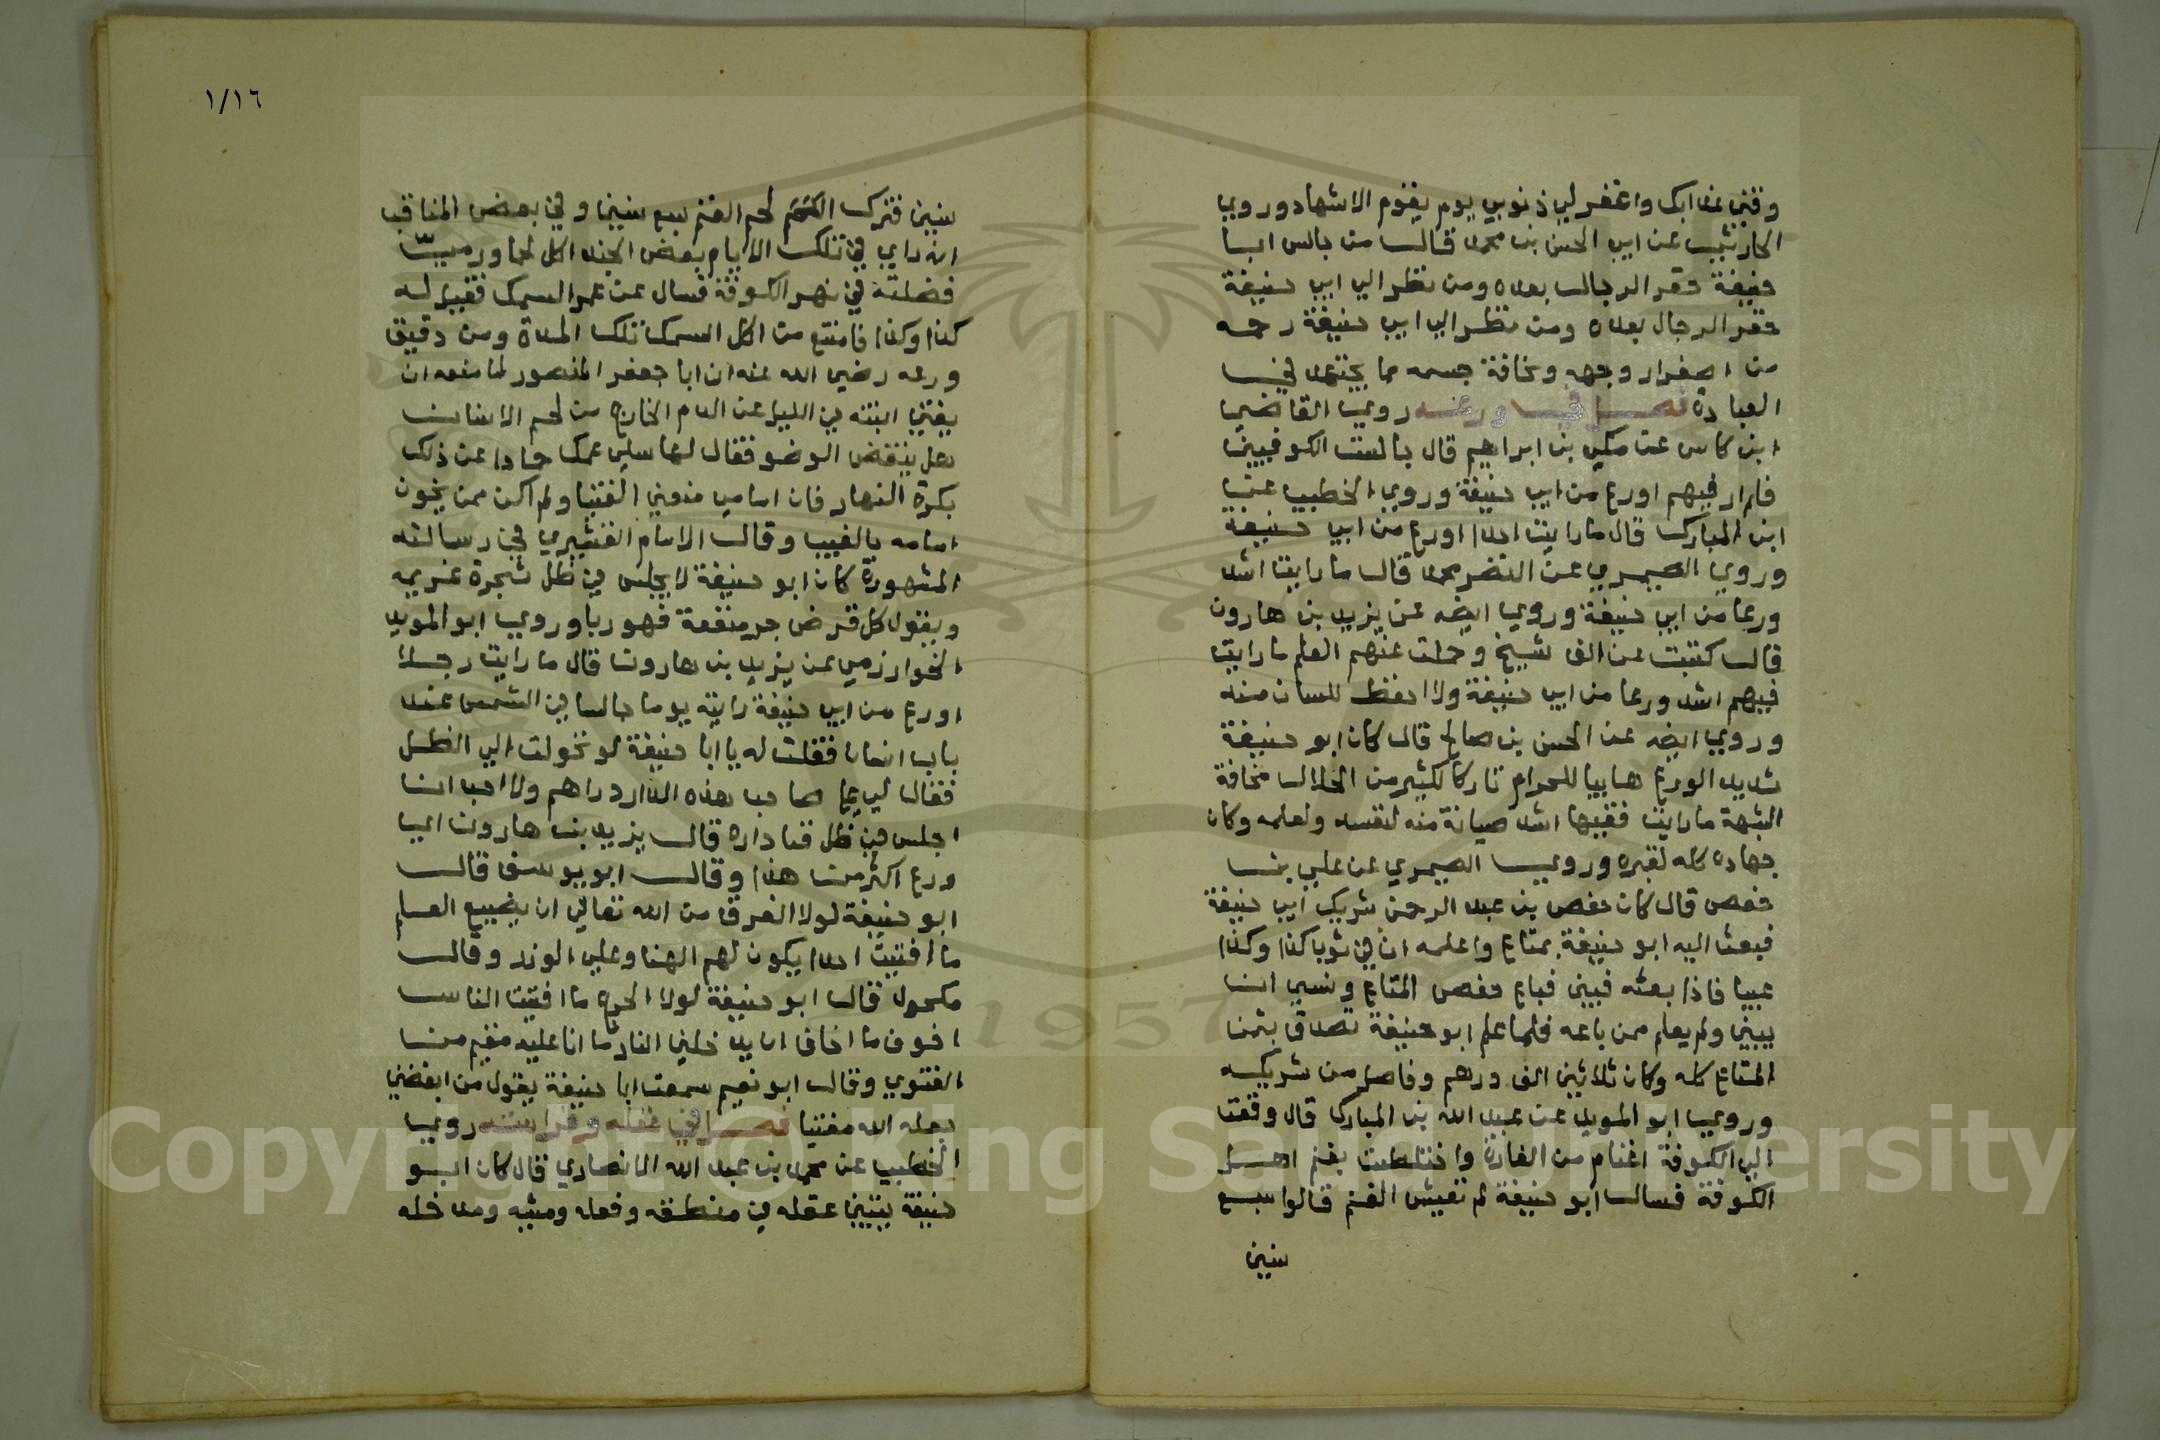 وقني عذابك واغفر لي ذنوبي يوم يقوم الاشهاد وروي
الحارثي عن ابي الحسن بن محمد قال من جالس ابا
حنيفة حقر الرجال بعده ومن نظر الي ابي حنيفة
حقر الرجال بعده ومن نظر الي ابي حنيفة رحمه
من اصفرار وجهه ونحافة جسمه مما يجتهد في
العبادة فصل في ورعه روي القاضي
ابن كاس عن مكي بن ابراهيم قال جالست الكوفيين
فلم ار فيهم اورع من ابي حنيفة وروي الخطيب عن
ابن المبارك قال ما رايت احدا اورع من ابي حنيفة
وروي الصيمري عن النضر محمد قال ما رايت اشد
ورعا من ابي حنيفة وروي ايضه عن يزيد بن هارون
قال كتبت عن الف شيخ وحملت عنهم العلم ما رايت
فيهم اشد ورعا من ابي حنيفة ولا احفظ للسان منه
وروي ايضه عن الحسن بن صالح قال كان ابو حنيفة
شديد الورع هاييا للحرام تاركا لكثير من الحلال مخافة
الشبهة ما رايت فقيها اشد صيانة منه لنفسه ولعلمه وكان
جهاده كله لقبره وروي الصيمري عن علي بن
حفص قال كان حفص بن عبد الرحمن شريك ابي حنيفة
فبعث اليه ابو حنيفة بمتاع واعلمه ان في ثوب كذا وكذا
عيبا فاذا بعته فبين فباع حفص المتاع ونسي ان
يبين ولم يعلم ممن باعه فلما علم ابو حنيفة تصدق بثمن
المتاع كله وكان ثلاثين الف درهم وفاصل من شريكه
وروي ابو المويد عن عبد الله بن المبارك قال وقعت
الي الكوفة اغنام من الغارة واختلطت بغنم اهل
الكوفة فسال ابو حنيفة لم تعيش الغنم قالوا سبع
سنين
١/١٦
سنين فترك لحم الغنم سبع سنين وفي بعض المناقب
انه راي في تلك الايام بعض الجند اكل لحما ورمي
فضلته في نهر الكوفة فسال عن عمر السمك فقيل له
كذا وكذا فامتنع من اكل السمك تلك المدة ومن دقيق
ورعه رضي الله عنه ان ابا جعفر المنصور لما منعه ان
يفتي ابنته في الليل عن الدم الخارج من لحم الاسنان
هل ينقض الوضو فقال لها سلي عمك حمادا عن ذلك
بكرة النهار فان امامي منعني الفتيا ولم اكن ممن يخون
امامه بالغيب وقال الامام القشيري في رسالته
المشهورة كان ابو حنيفة لا يجلس في ظل شجرة غريمه
ويقول كل قرض جر منفعة فهو ربا وروي ابو المويد
الخوارزمي عن يزيد بن هارون قال ما رايت رجلا
اورع من ابي حنيفة رايته يوما جالسا في الشمس عند
باب انسان فقلت له يا ابا حنيفة لو تحولت الي الظل
فقال لي علي صاحب هذه الدار دراهم ولا احب ان
اجلس في ظل فنا داره قال يزيد بن هارون اي
ورع اكثر من هذا وقال ابو يوسف قال
ابو حنيفة لولا الفرق من الله تعالي ان يضيع العلم
ما افتيت احدا يكون لهم الهنا وعلي الوزر وقال
مكحول قال ابو حنيفة لولا الحرج ما افتيت الناس
اخوف ما اخاف ان يدخلني النار ما انا عليه مقيم من
الفتوي وقال ابو نعيم سمعت ابا حنيفة يقول من ابغضني
جعله الله مفتيا فصل في عقله وفراسته روي
الخطيب عن محمد بن عبد الله الانصاري قال كان ابو
حنيفة يتبين عقله في منطقه وفعله ومشيه ومدخله
Copyright © King Saud University
1957